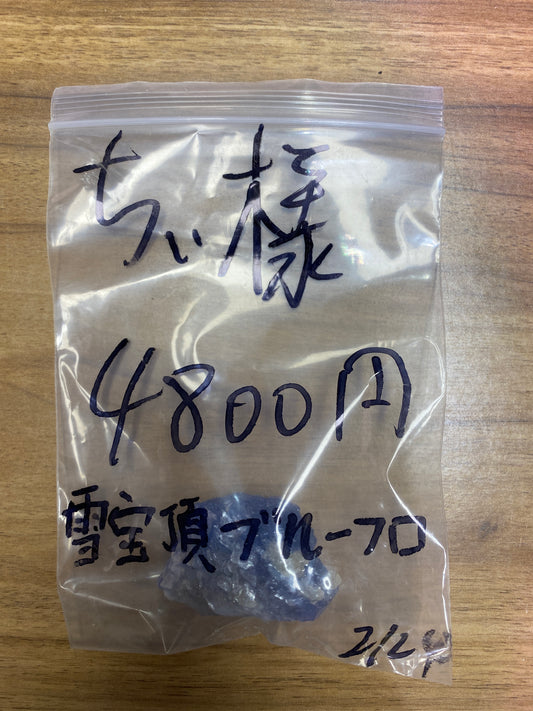 ちぃ様
4800円
雪宝頂ブルーフロ